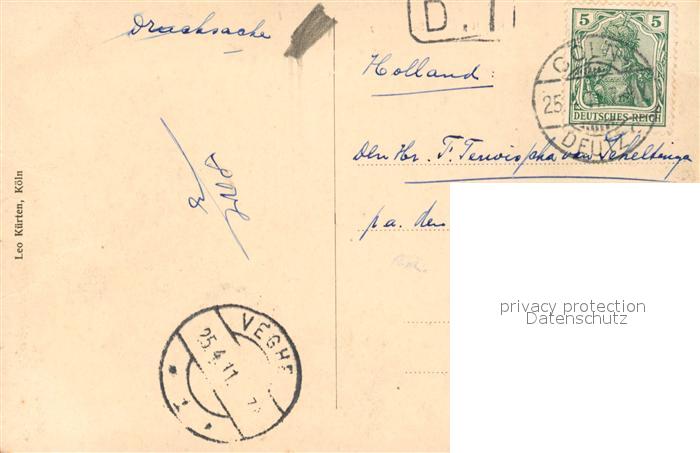 Drucksache
5 5
DEUTSCHES REICH
25.
DEUTZ
Holland:
Den Hr. T.
p/a. den
Leo Kürten, Köln
VEGHE
25.4.11.
1
privacy protection
Datenschutz